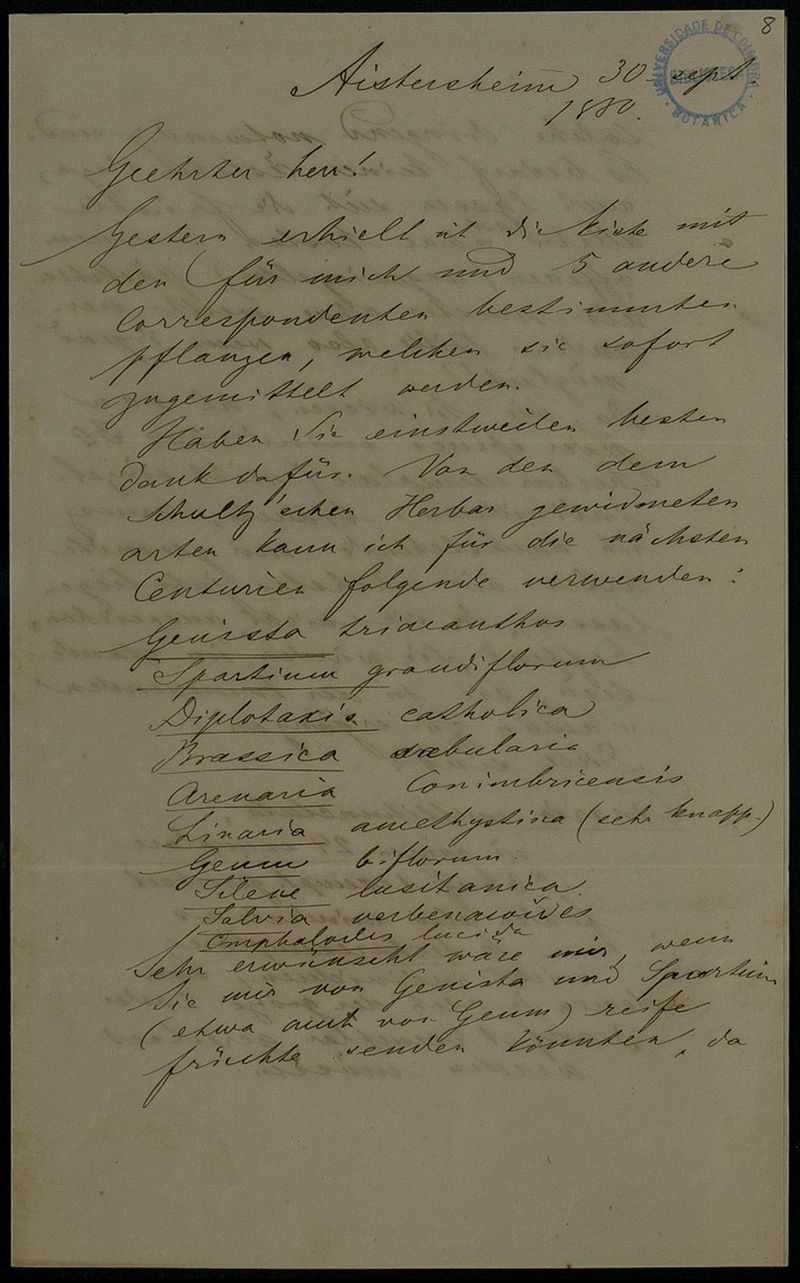 8
UNIVERSIDADE DE COIMBRA
BIBLIOTECA
BOTANICA
Aistersheim 30 sept.
1880.
Geehrter herr!
Gestern erhielt ich die Kiste mit
den für mich und 5 andere
Correspondenten bestimmten
pflanzen, welchen sie sofort
zugemittelt werden.
Haben Sie einstweilen besten
dank dafür. Von den dem
Schultz'schen Herbar gewidmeten
arten kann ich für die nächsten
Centurien folgende verwenden:
Genista triacanthos
Spartium grandiflorum
Diplotaxis catholica
Brassica sabularia
Arenaria Conimbricensis
Linaria amethystina (sehr knapp.)
Geum biflorum
Silene lusitanica.
Salvia verbenacoïdes
Omphalodes lucida
Sehr erwünscht wäre mir, wenn
Sie mir von Genista und Spartium
(etwa auch von Geum) reife
früchte senden könnten, da